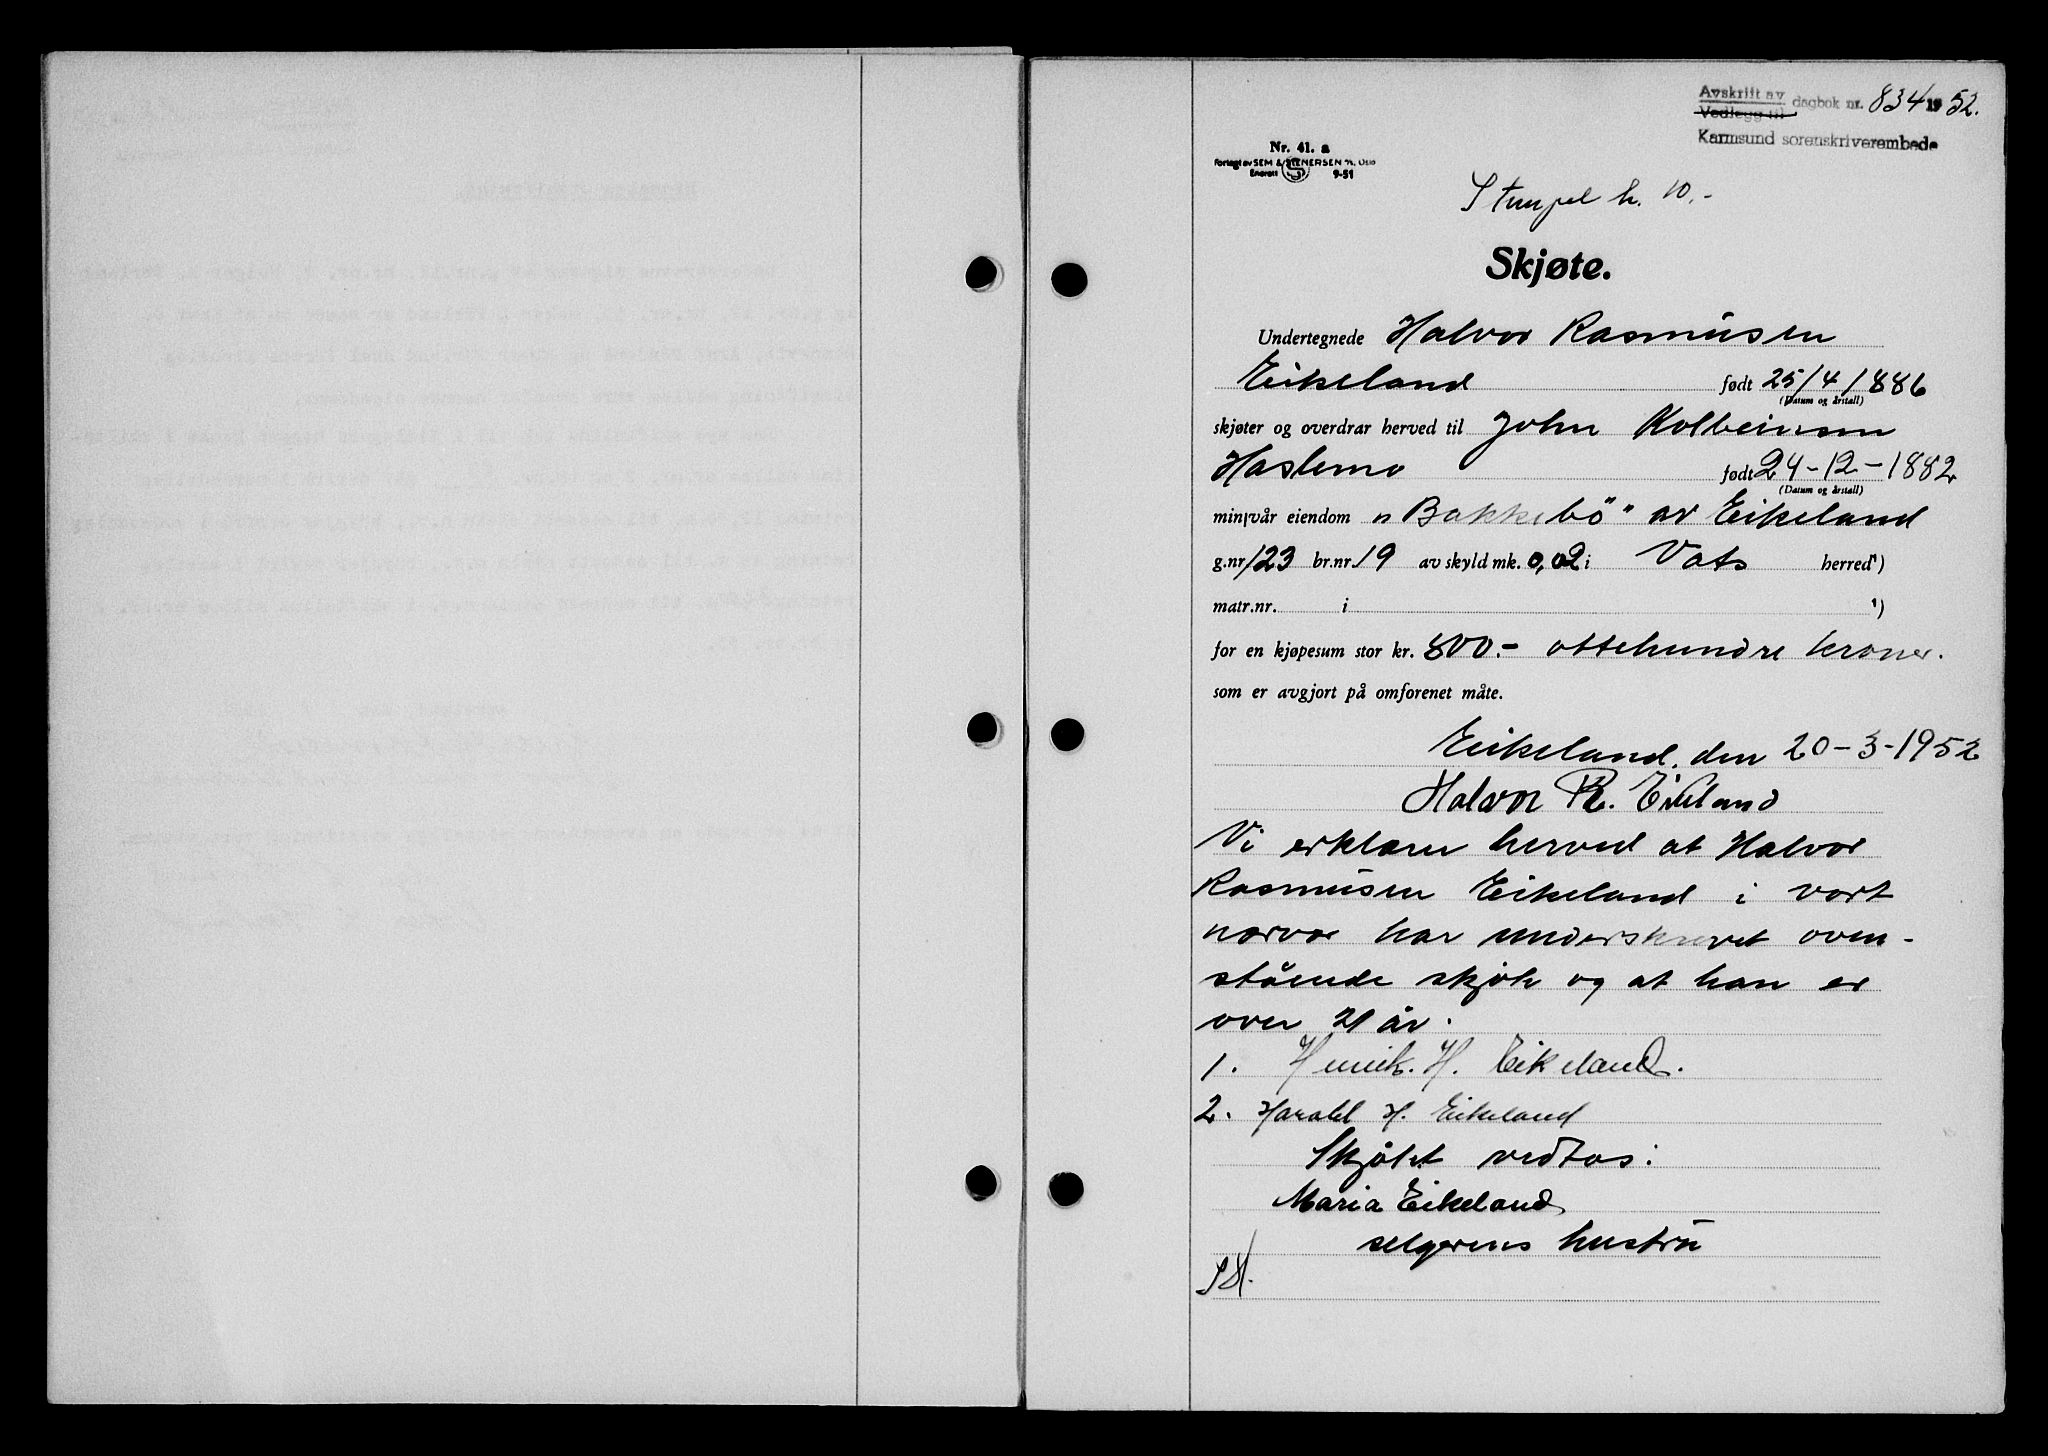 Avskrift av
Vedlegg til
dagbok nr. 834 1952.
Karmsund sorenskriverembede
Nr. 41. a
Forlagt av SEM & STENERSEN A/S, Oslo
Enerett S 9-51
Stempel kr. 10.-
Skjøte.
Undertegnede Halvor Rasmusen
Eikeland født 25/4 1886
(Datum og årstall)
skjøter og overdrar herved til John Kolbeinsen
født 24-12-1882
(Datum og årstall)
min/vår eiendom "Bakkebö" av Eikeland
g.nr 123 br.nr 19 av skyld mk. 0,02 i Vats herred ¹)
matr.nr. i ¹)
for en kjøpesum stor kr. 800.- ottehundre kroner.
som er avgjort på omforenet måte.
Eikeland, den 20-3-1952
Halvor R. Eikeland
Vi erklærer herved at Halvor
Rasmusen Eikeland i vort
nærvær har underskrevet oven-
stående skjøte og at han er
over 21 år.
1. Henrik. H. Eikeland.
2. Harald H. Eikeland
Skjötet vedtas:
Maria Eikeland
selgerens hustru